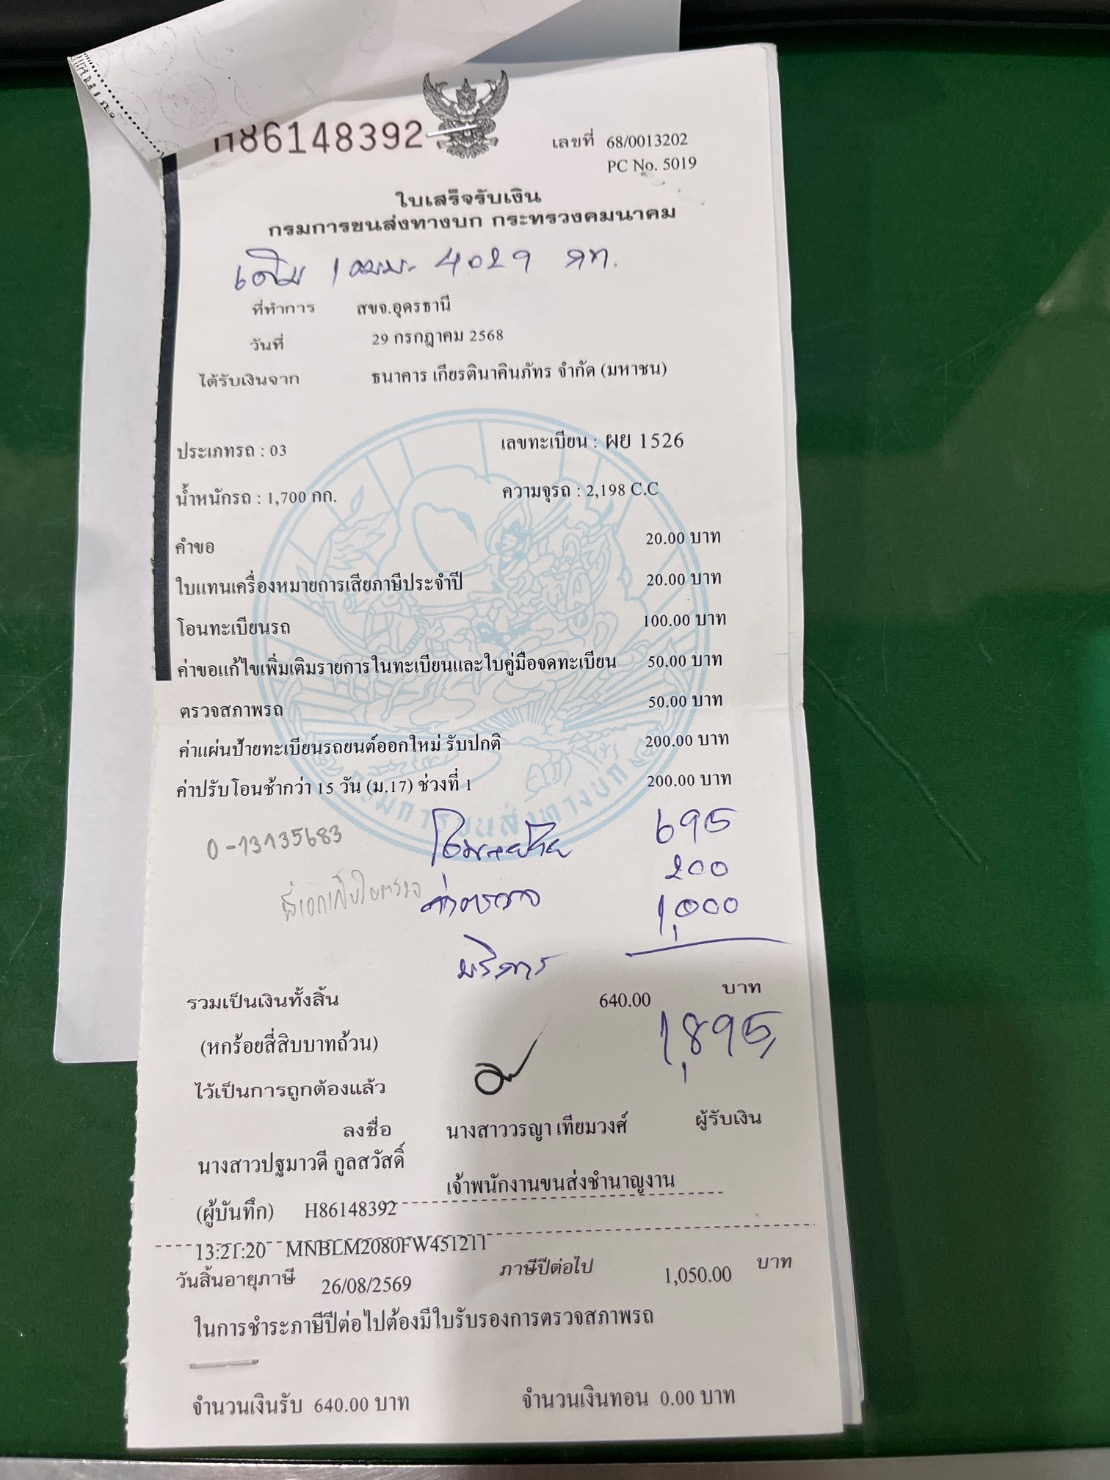 H86148392
เลขที่ 68/0013202
PC No. 5019
ใบเสร็จรับเงิน
กรมการขนส่งทางบก กระทรวงคมนาคม
เดิม 1 4029 กท.
ที่ทำการ สขจ.อุดรธานี
วันที่ 29 กรกฎาคม 2568
ได้รับเงินจาก ธนาคาร เกียรตินาคินภัทร จำกัด (มหาชน)
ประเภทรถ : 03 เลขทะเบียน : ผย 1526
น้ำหนักรถ : 1,700 กก. ความจุรถ : 2,198 C.C
คำขอ 20.00 บาท
ใบแทนเครื่องหมายการเสียภาษีประจำปี 20.00 บาท
โอนทะเบียนรถ 100.00 บาท
ค่าขอแก้ไขเพิ่มเติมรายการในทะเบียนและใบคู่มือจดทะเบียน 50.00 บาท
ตรวจสภาพรถ 50.00 บาท
ค่าแผ่นป้ายทะเบียนรถยนต์ออกใหม่ รับปกติ 200.00 บาท
ค่าปรับโอนช้ากว่า 15 วัน (ม.17) ช่วงที่ 1 200.00 บาท
กรมการขนส่งทางบก
0-13135683 695
200
ค่าตรวจ 1,000
บริการ
รวมเป็นเงินทั้งสิ้น 640.00 บาท
(หกร้อยสี่สิบบาทถ้วน) 1,895
ไว้เป็นการถูกต้องแล้ว
ลงชื่อ นางสาววรญา เทียมวงศ์ ผู้รับเงิน
นางสาวปฐมาวดี กูลสวัสดิ์
เจ้าพนักงานขนส่งชำนาญงาน
(ผู้บันทึก) H86148392
13:21:20 MNBLM2080FW451211
วันสิ้นอายุภาษี 26/08/2569 ภาษีปีต่อไป 1,050.00 บาท
ในการชำระภาษีปีต่อไปต้องมีใบรับรองการตรวจสภาพรถ
จำนวนเงินรับ 640.00 บาท จำนวนเงินทอน 0.00 บาท